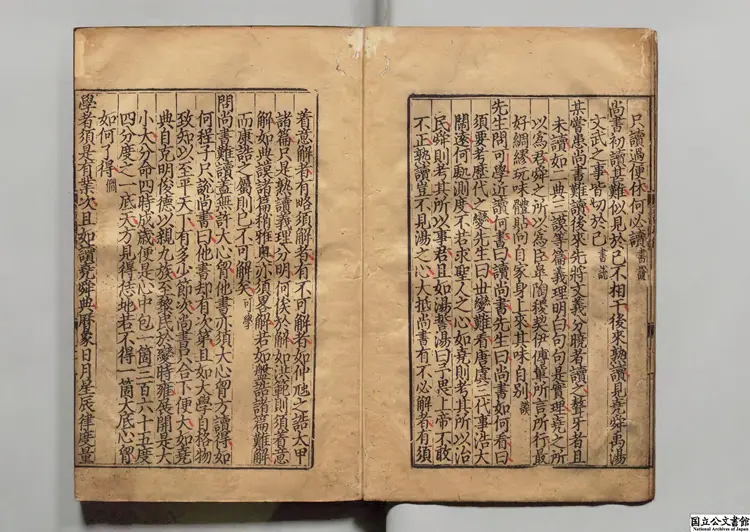 只讀過便休何必讀
尚書初讀甚難似見於己不相干後來熟讀見堯舜禹湯
文武之事皆切於己
某嘗患尚書難讀後來先將文義分曉者讀之聱牙者且
未讀如二典三謨等篇義理明白句句是實理堯之所
以為君舜之所以為臣皐陶稷契伊傅輩所言所行最
好綢繆玩味體貼向自家身上來其味自別
先生問可學近讀何書曰讀尚書先生曰尚書如何看曰
須要考歷代之變先生曰世變難看唐虞三代事浩大
闊遠何處測度不若求聖人之心如堯則考其所以治
民舜則考其所以事君且如湯誓湯曰予畏上帝不敢
不正熟讀豈不見湯之心大抵尚書有不必解者有須
着意解者有略須解者有不可解者如仲虺之誥太甲
諸篇只是熟讀義理分明何俟於解如洪範則須着意
解如典謨諸篇稍雅奥亦須畧解若如盤誥諸篇難解
而康誥之屬則已不可解矣 可學
問尚書難讀蓋無許大心胷他書亦須大心胷方讀得如
何程子只說尚書曰他書却有次第且如大學自格物
致知以至平天下有多少節次尚書只合下便大如堯
典自克明俊德以親九族至黎民於變時雍展開是大
小大分命四時成歲便是心中包一箇三百六十五度
四分度之一底天方見得恁地若不得一箇大底心胷
如何了得
學者須是有業次且如讀堯舜典曆象日月星辰律度量
国立公文書館
National Archives of Japan